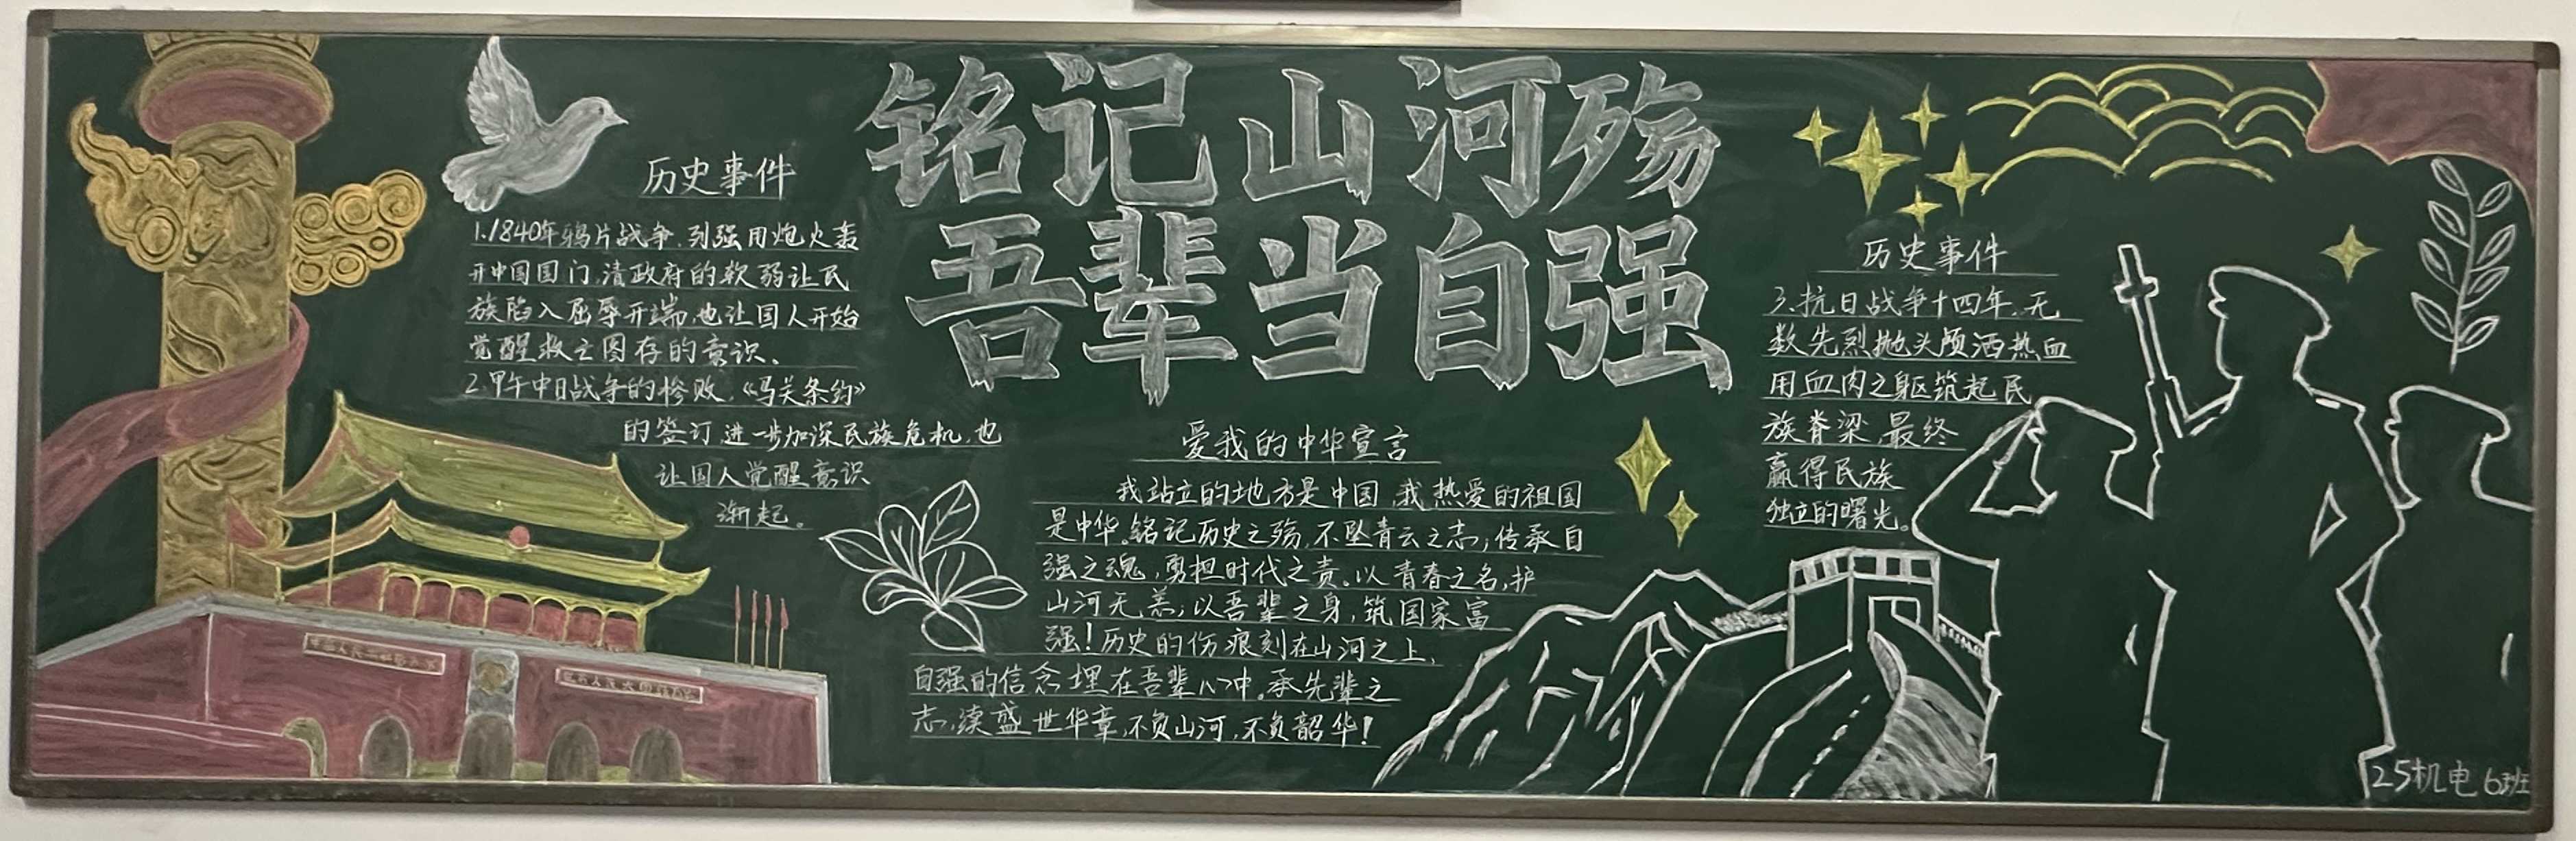 铭记山河殇
吾辈当自强
历史事件
1.1840年鸦片战争,列强用炮火轰
开中国国门,清政府的软弱让民
族陷入屈辱开端,也让国人开始
觉醒救亡图存的意识、
2.甲午中日战争的惨败,《马关条约》
的签订,进一步加深民族危机,也
让国人觉醒意识
渐起。
爱我的中华宣言
我站立的地方是中国,我热爱的祖国
是中华。铭记历史之殇,不坠青云之志;传承自
强之魂,勇担时代之责。以青春之名,护
山河无恙;以吾辈之身,筑国家富
强!历史的伤痕刻在山河之上,
自强的信念埋在吾辈心中。承先辈之
志,续盛世华章,不负山河,不负韶华!
历史事件
3.抗日战争十四年,无
数先烈抛头颅洒热血
用血肉之躯筑起民
族脊梁,最终
赢得民族
独立的曙光。
25机电6班